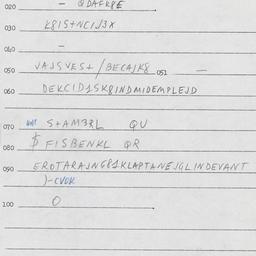 020 — QDAFK8E
030 K8IS+NCIJ3X
040 —
050 VAJSVES+/BECAJK8 051 —
060 DEKCID1SK8INDMIDEMPLEJD
070 S+AM3RL QU
080 $ FISBENKL QR
090 EROTARAJNG81KLAPTANEJGLINDEVANT
)-CVOK
100 O